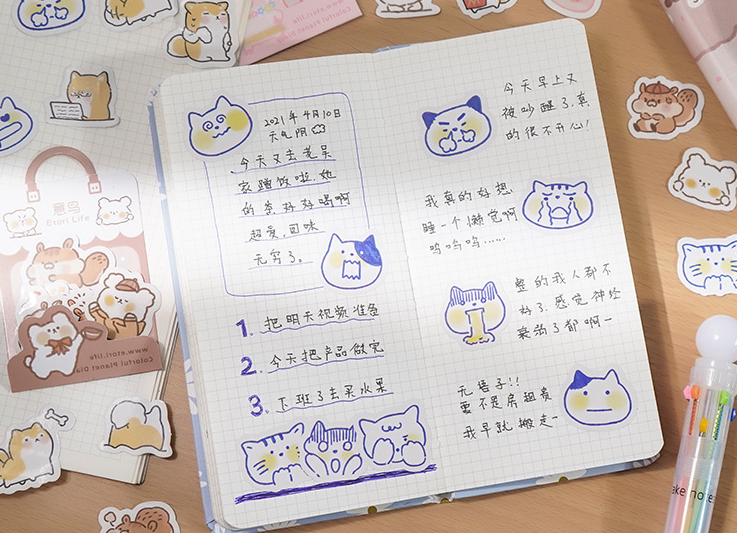 2021年4月10日
天气阴
今天又去老吴
家蹭饭啦,她
的枣好好喝啊
超爱,回味
无穷了。
1. 把明天视频准备
2. 今天把产品做完
3. 下班了去买水果
今天早上又
被吵醒了,真
的很不开心!
我真的好想
睡一个懒觉啊
呜呜呜……
整的我人都不
好了.感觉神经
衰弱了都啊一
无语子!!
要不是房租贵
我早就搬走~
意鸟
Etori Life
www.etori.life
Colorful Planet Dia
www.etori.life
Colorful Planet
ake note